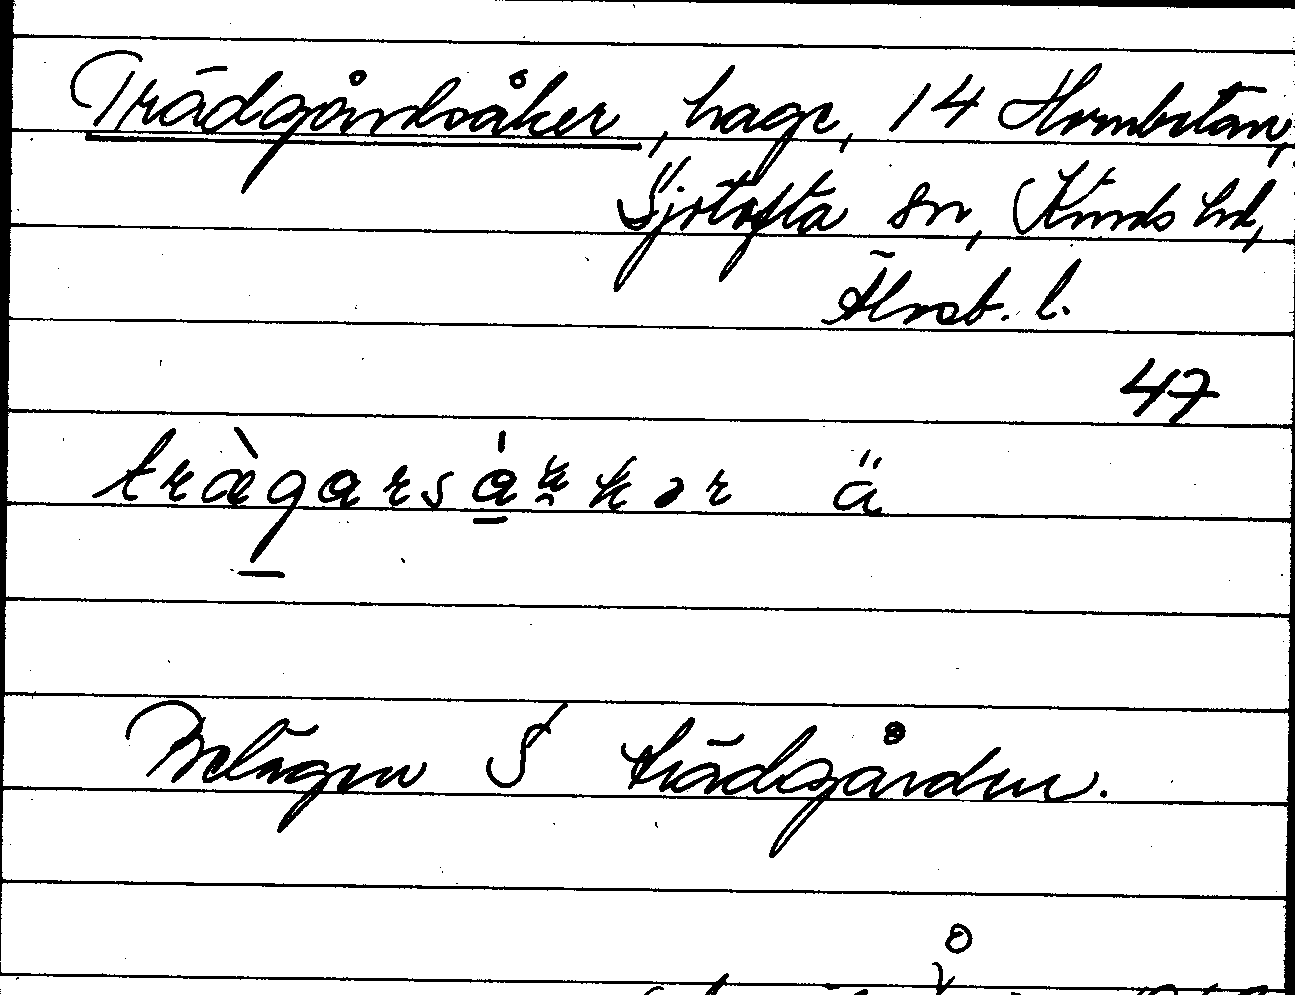 Trädgårdsåker, hage, 14 Hornbetan,
Sjötofta sn, Kinds hd,
Älvsb. l.
47
trägarsåkkər ä
Belägen S trädgården.